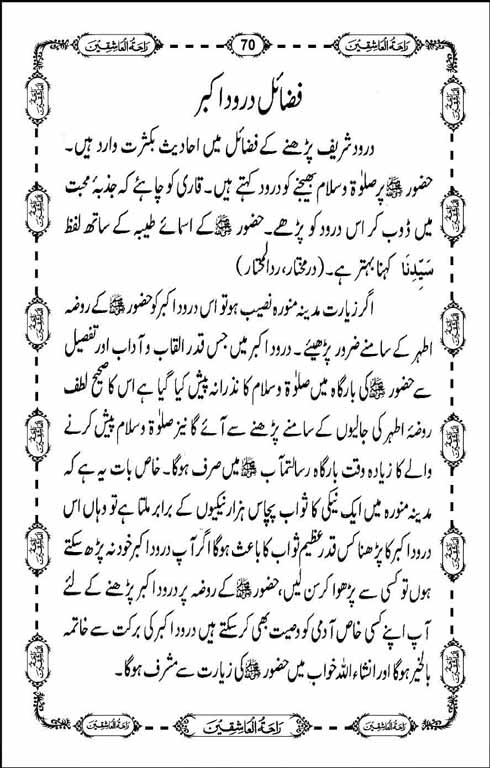 رَاحَةُ الْعَاشِقِيْنَ 70 رَاحَةُ الْعَاشِقِيْنَ
فضائل درود اکبر
درود شریف پڑھنے کے فضائل میں احادیث بکثرت وارد ہیں۔
حضور ﷺ پر صلوٰۃ وسلام بھیجنے کو درود کہتے ہیں۔ قاری کو چاہئے کہ جذبۂ محبت
میں ڈوب کر اس درود کو پڑھے۔ حضور ﷺ کے اسمائے طیبہ کے ساتھ لفظ
سَیِّدِنَا کہنا بہتر ہے۔ (درمختار، ردالمختار)
اگر زیارت مدینہ منورہ نصیب ہو تو اس درود اکبر کو حضور ﷺ کے روضہ
اطہر کے سامنے ضرور پڑھیئے۔ درود اکبر میں جس قدر القاب و آداب اور تفصیل
سے حضور ﷺ کی بارگاہ میں صلوٰۃ وسلام کا نذرانہ پیش کیا گیا ہے اس کا صحیح لطف
روضۂ اطہر کی جالیوں کے سامنے پڑھنے سے آئے گا نیز صلوٰۃ وسلام پیش کرنے
والے کا زیادہ وقت بارگاہ رسالتمآب ﷺ میں صرف ہوگا۔ خاص بات یہ ہے کہ
مدینہ منورہ میں ایک نیکی کا ثواب پچاس ہزار نیکیوں کے برابر ملتا ہے تو وہاں اس
درود اکبر کا پڑھنا کس قدر عظیم ثواب کا باعث ہوگا اگر آپ درود اکبر خود نہ پڑھ سکتے
ہوں تو کسی سے پڑھوا کر سن لیں، حضور ﷺ کے روضہ پر درود اکبر پڑھنے کے لئے
آپ اپنے کسی خاص آدمی کو وصیت بھی کر سکتے ہیں درود اکبر کی برکت سے خاتمہ
بالخیر ہوگا اور انشاء اللہ خواب میں حضور ﷺ کی زیارت سے مشرف ہوگا۔
رَاحَةُ الْعَاشِقِيْنَ رَاحَةُ الْعَاشِقِيْنَ رَاحَةُ الْعَاشِقِيْنَ